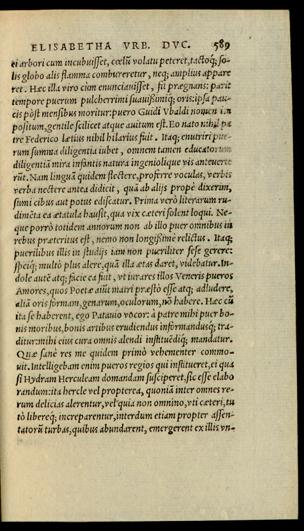 ELISABETHA VRB. DVC. 589
ei arbori cum incubuisset, cœlũ volatu peteret, tactoq́; so-
lis globo alis flamma combureretur, neq; amplius appare
ret. Hæc illa viro cùm enunciauisset, fit prægnans: parit
tempore puerum pulcherrimi suauissimiq́; oris: ipsa pau-
cis pòst mensibus moritur: puero Guidi Vbaldi nomen im
positum, gentile scilicet atque auitum est. Eo nato nihil pa
tre Federico lætius nihil hilarius fuit. Itaq; enutriri pue-
rum summa diligentia iubet, omnem tamen educatorum
diligentiã mira infantis natura ingenioliq́ue vis anteuerte
rũt. Nam linguã quidem flectere, proferre voculas, verbis
verba nectere antea didicit, quã ab alijs propè dixerim,
sumi cibus aut potus edifcatur. Prima verò literarum ru-
dimẽta ea ætatula hausit, qua vix cæteri solent loqui. Ne-
que porrò totidem annorum non ab illo puer omnibus in
rebus præteritus est, nemo non longissimè relictus. Itaq;
puerilibus illis in studijs iam non pueriliter sese gerere:
speiq́; multò plus alere, quã illa ætas daret, videbatur. In-
dole autẽ atq; facie ea fuit, vt iurares illos Veneris pueros
Amores, quos Poetæ aiũt matri præstò esse atq; adludere,
aliã oris formam, genarum, oculorum, nõ habere. Hæc cũ
ita se haberent, ego Patauio vocor: à patre mihi puer bo-
nis moribus, bonis artibus erudiendus informandusq́; tra-
ditur: mihi eius cura omnis alendi instituẽdiq́; mandatur.
Quæ sanè res me quidem primò vehementer commo-
uit. Intelligebam enim pueros regios qui institueret, ei qua
si Hydram Herculeam domandam susciperet, sic esse elabo
randum: ita hercle vel propterea, quoniã inter omnes re-
rum delicias alerentur, vel quia non omnino, vti cæteri, tu
tò libereq́; increparentur, interdum etiam propter assen-
tatorũ turbas, quibus abundarent, emergerent ex illis vn-